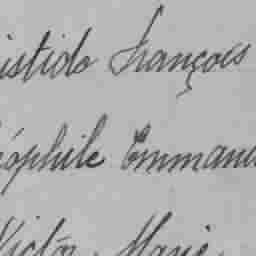 istide François
éophile Emmanu
Victor Marie